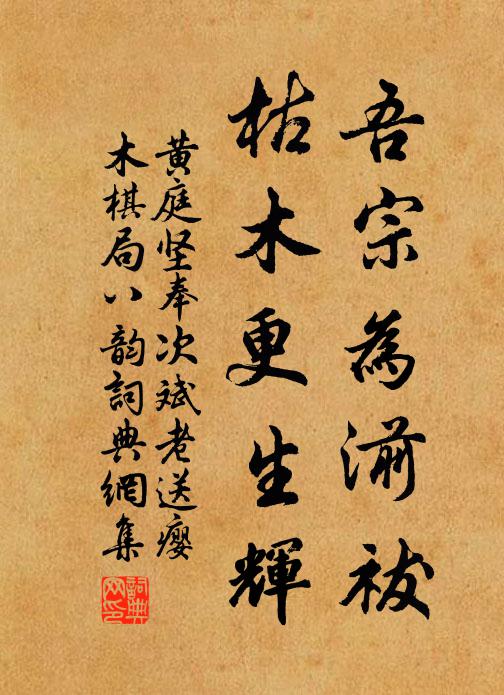 吾宗為湔祓
枯木更生輝
黄庭坚奉次斌老送瘿
木棋局八韵詞典網集
詞典網印